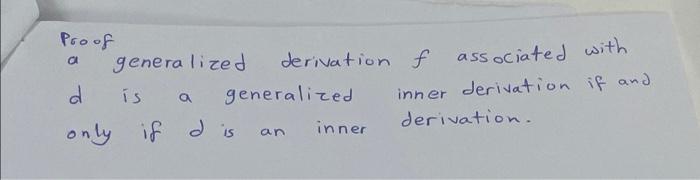 Proof
a generalized derivation f associated with
d is a generalized inner derivation if and
only if d is an inner derivation.